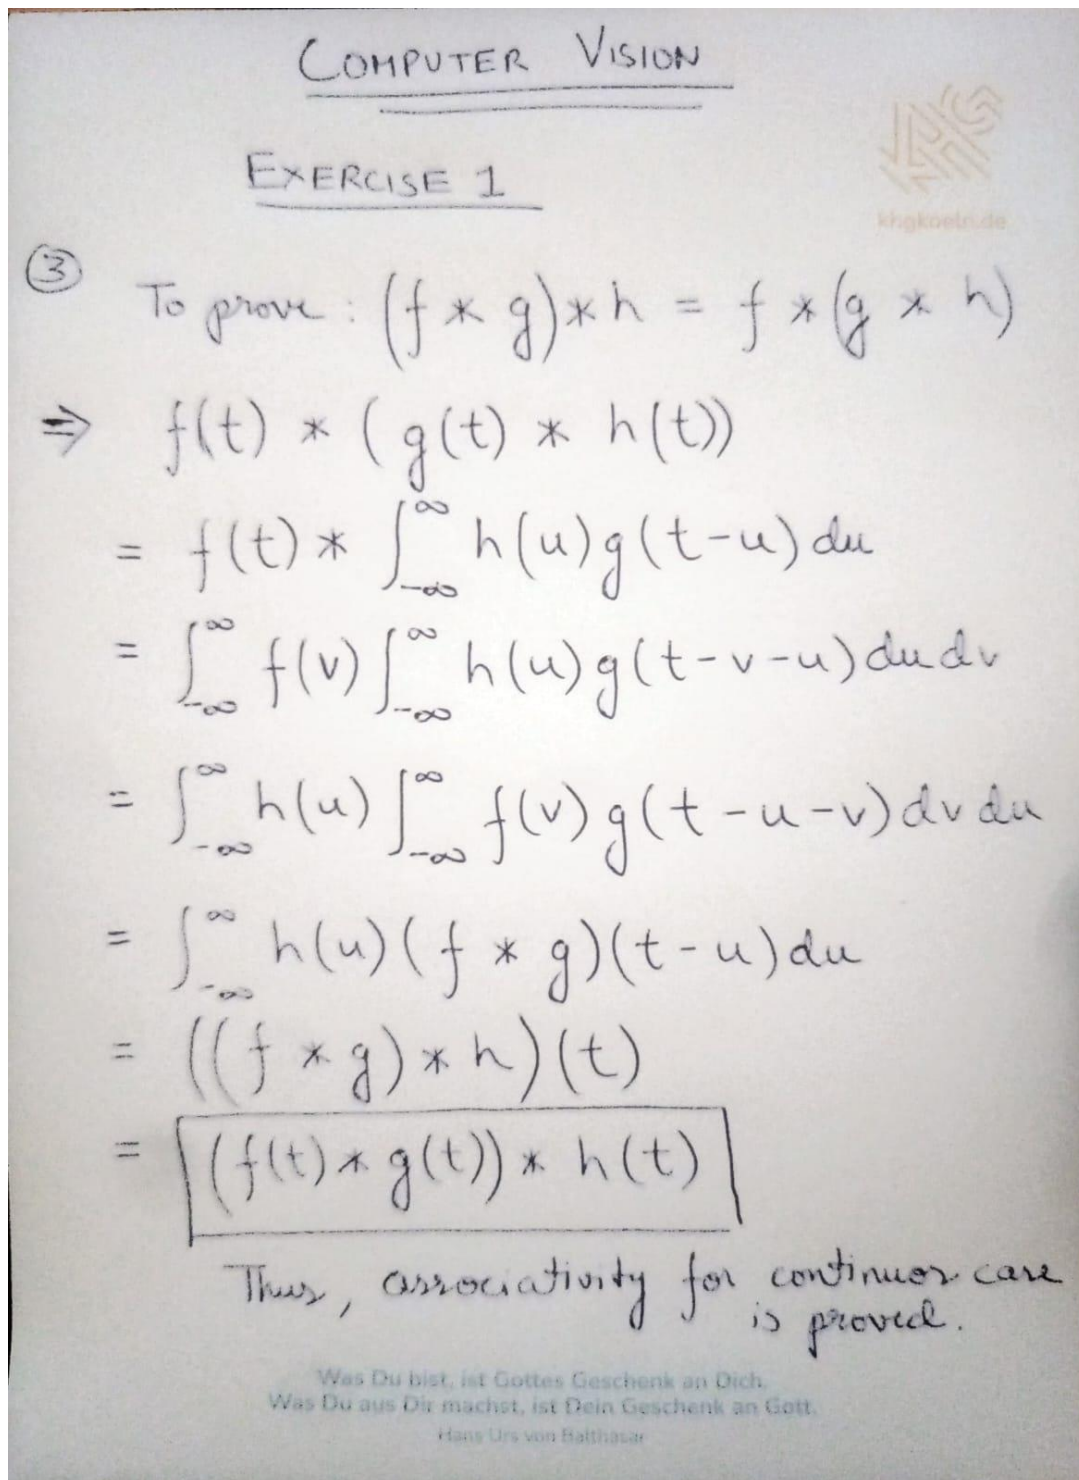 COMPUTER VISION
khgkoeln.de
EXERCISE 1
③ To prove : (f * g) * h = f * (g * h)
⇒ f(t) * (g(t) * h(t))
= f(t) * ∫_{-∞}^{∞} h(u) g(t-u) du
= ∫_{-∞}^{∞} f(v) ∫_{-∞}^{∞} h(u) g(t-v-u) du dv
= ∫_{-∞}^{∞} h(u) ∫_{-∞}^{∞} f(v) g(t-u-v) dv du
= ∫_{-∞}^{∞} h(u) (f * g)(t-u) du
= ((f * g) * h)(t)
= (f(t) * g(t)) * h(t)
Thus, associativity for continuos case
is proved.
Was Du bist, ist Gottes Geschenk an Dich.
Was Du aus Dir machst, ist Dein Geschenk an Gott.
Hans Urs von Balthasar